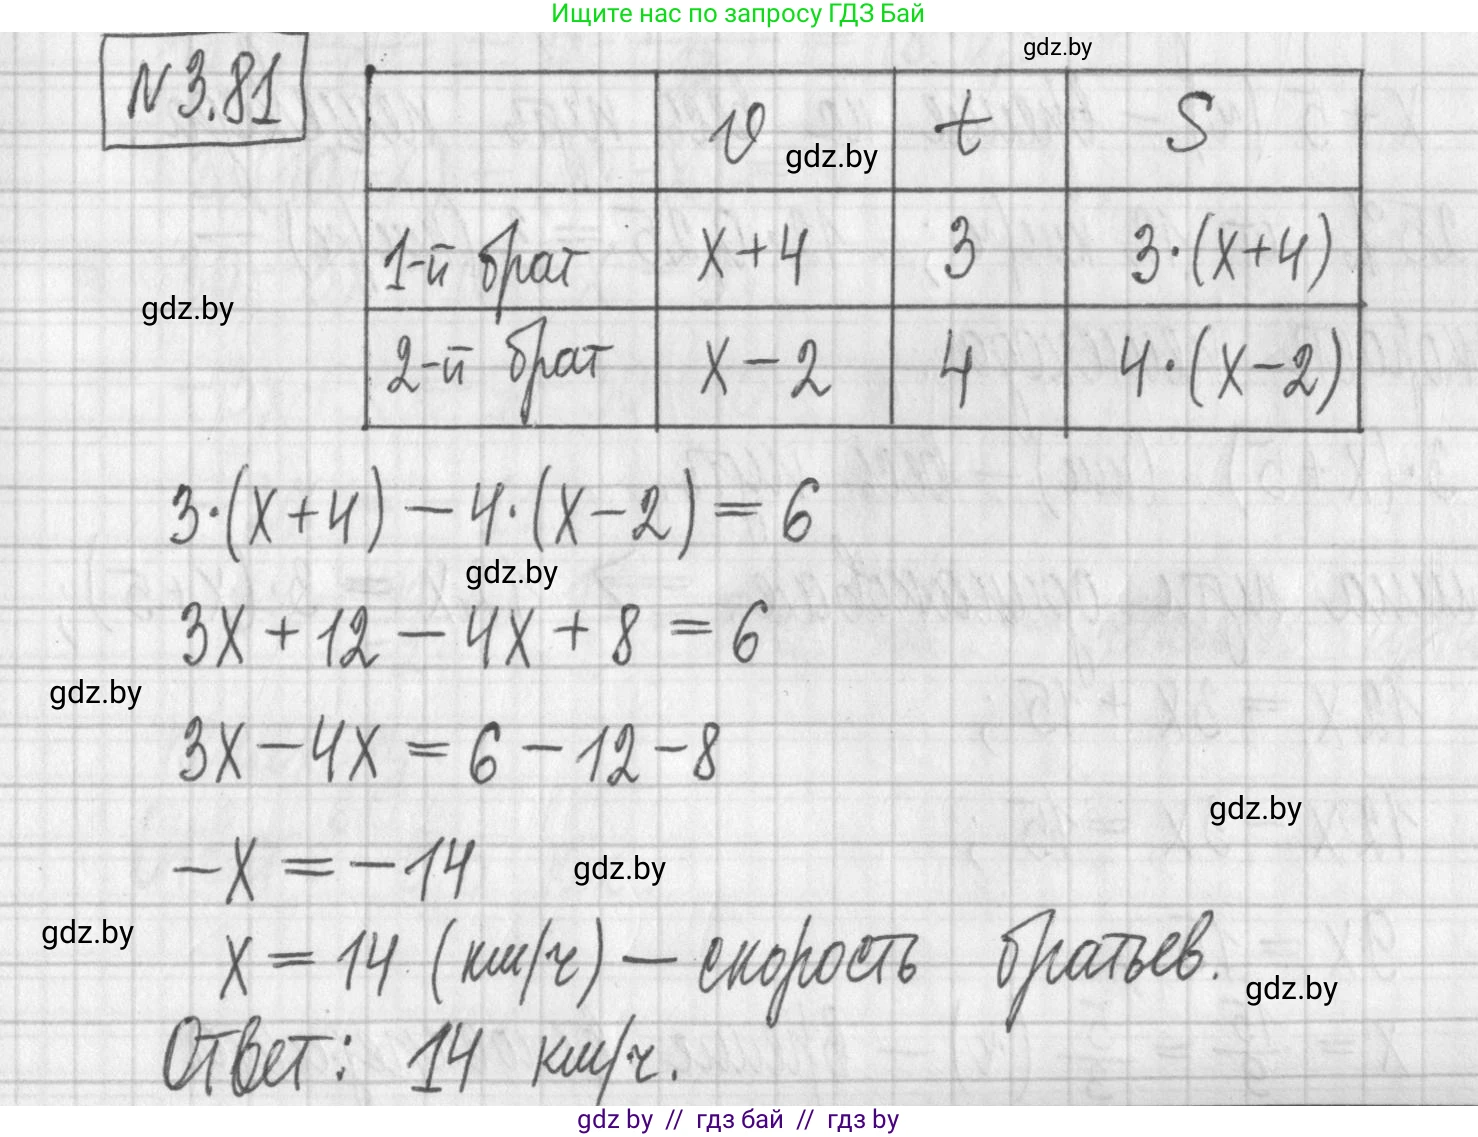 Ищите нас по запросу ГДЗ Бай
gdz.by
N 3.81
v t S
gdz.by
1-й брат x+4 3 3·(x+4)
gdz.by
2-й брат x-2 4 4·(x-2)
3·(x+4) - 4·(x-2) = 6
gdz.by
3x + 12 - 4x + 8 = 6
gdz.by
3x - 4x = 6 - 12 - 8
gdz.by
-x = -14
gdz.by
gdz.by
x = 14 (км/ч) - скорость братьев.
gdz.by
Ответ: 14 км/ч.
gdz by // гдз бай // гдз by